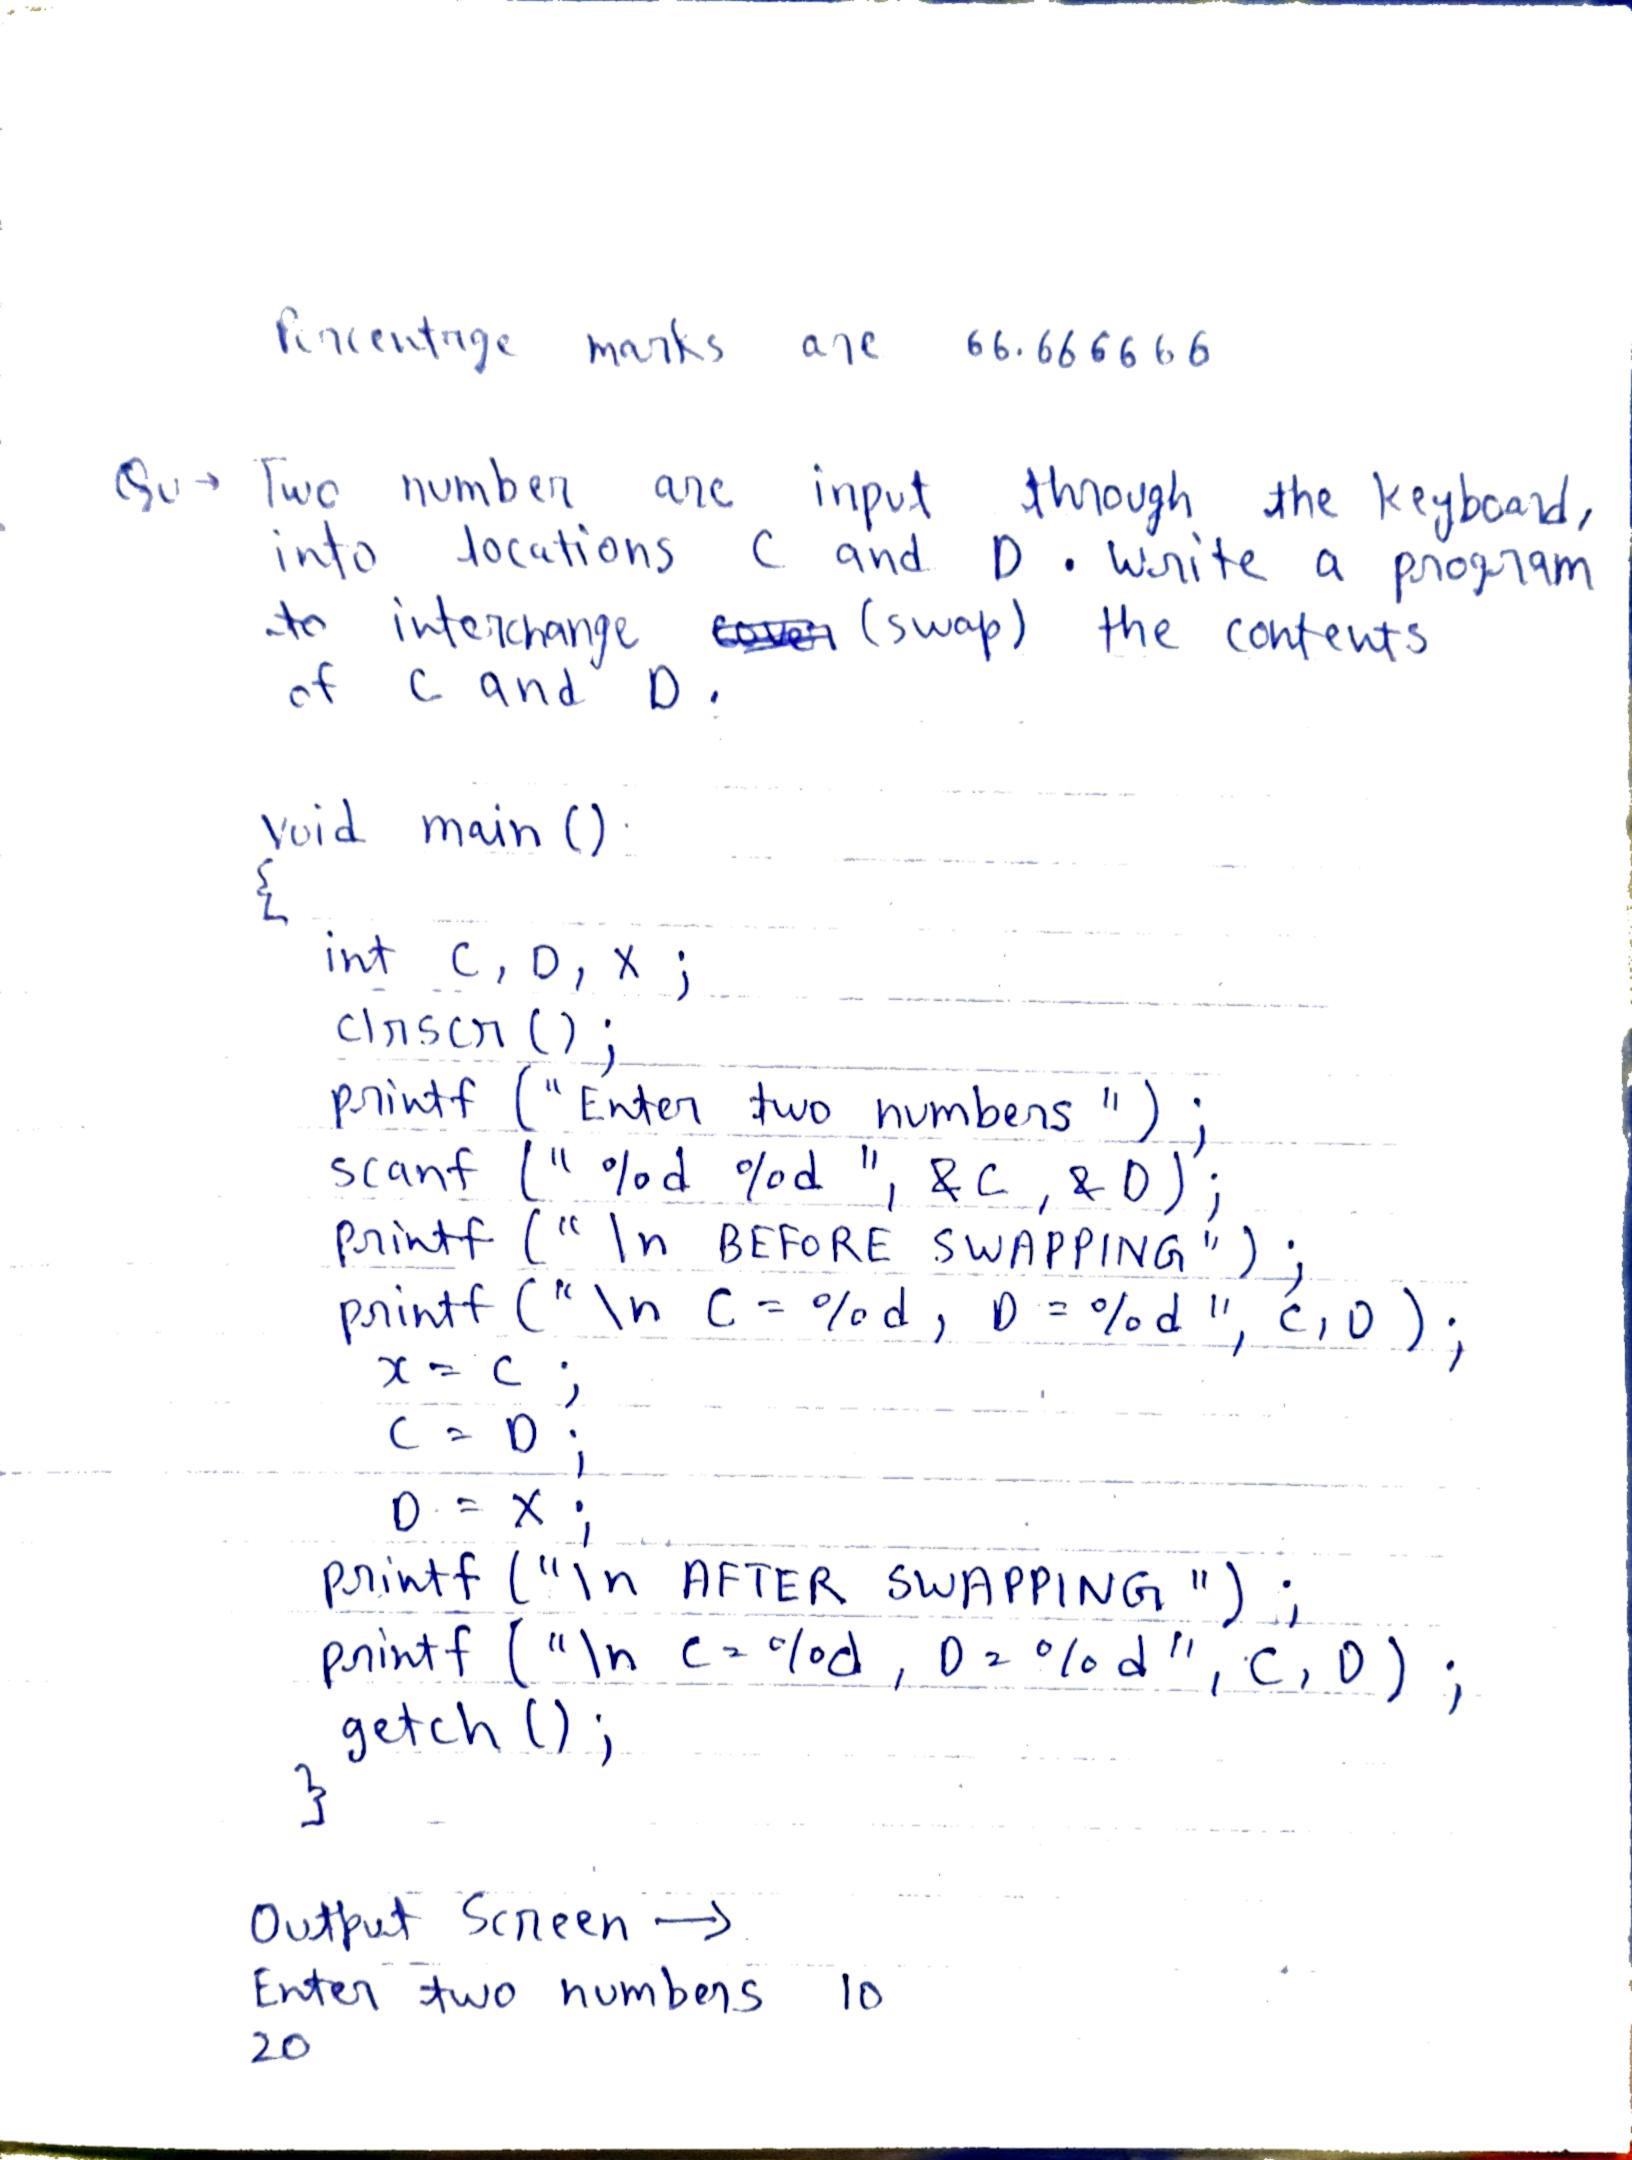 Percentage marks are 66.666666
Qu → Two number are input through the keyboard,
into locations C and D. Write a program
to interchange (swap) the contents
of C and D.
void main ()
{
int C, D, X ;
clrscr () ;
printf ("Enter two numbers ") ;
scanf (" %d %d ", &C, &D) ;
printf (" \n BEFORE SWAPPING") ;
printf (" \n C = %d, D = %d ", C, D ) ;
x = C ;
C = D ;
D = X ;
printf ("\n AFTER SWAPPING ") ;
printf ("\n C = %d , D = %d", C, D) ;
getch () ;
}
Output Screen →
Enter two numbers 10
20